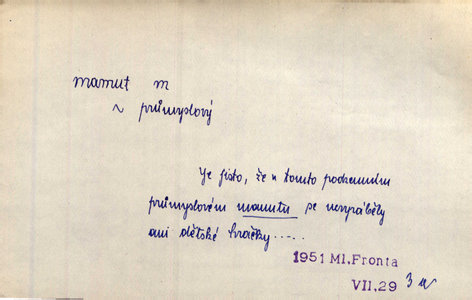 mamut m
~ průmyslový
Je jisto, že v tomto podzemním
průmyslovém mamutu se nevyráběly
ani dětské hračky.....
1951 Ml.Fronta
VII.29